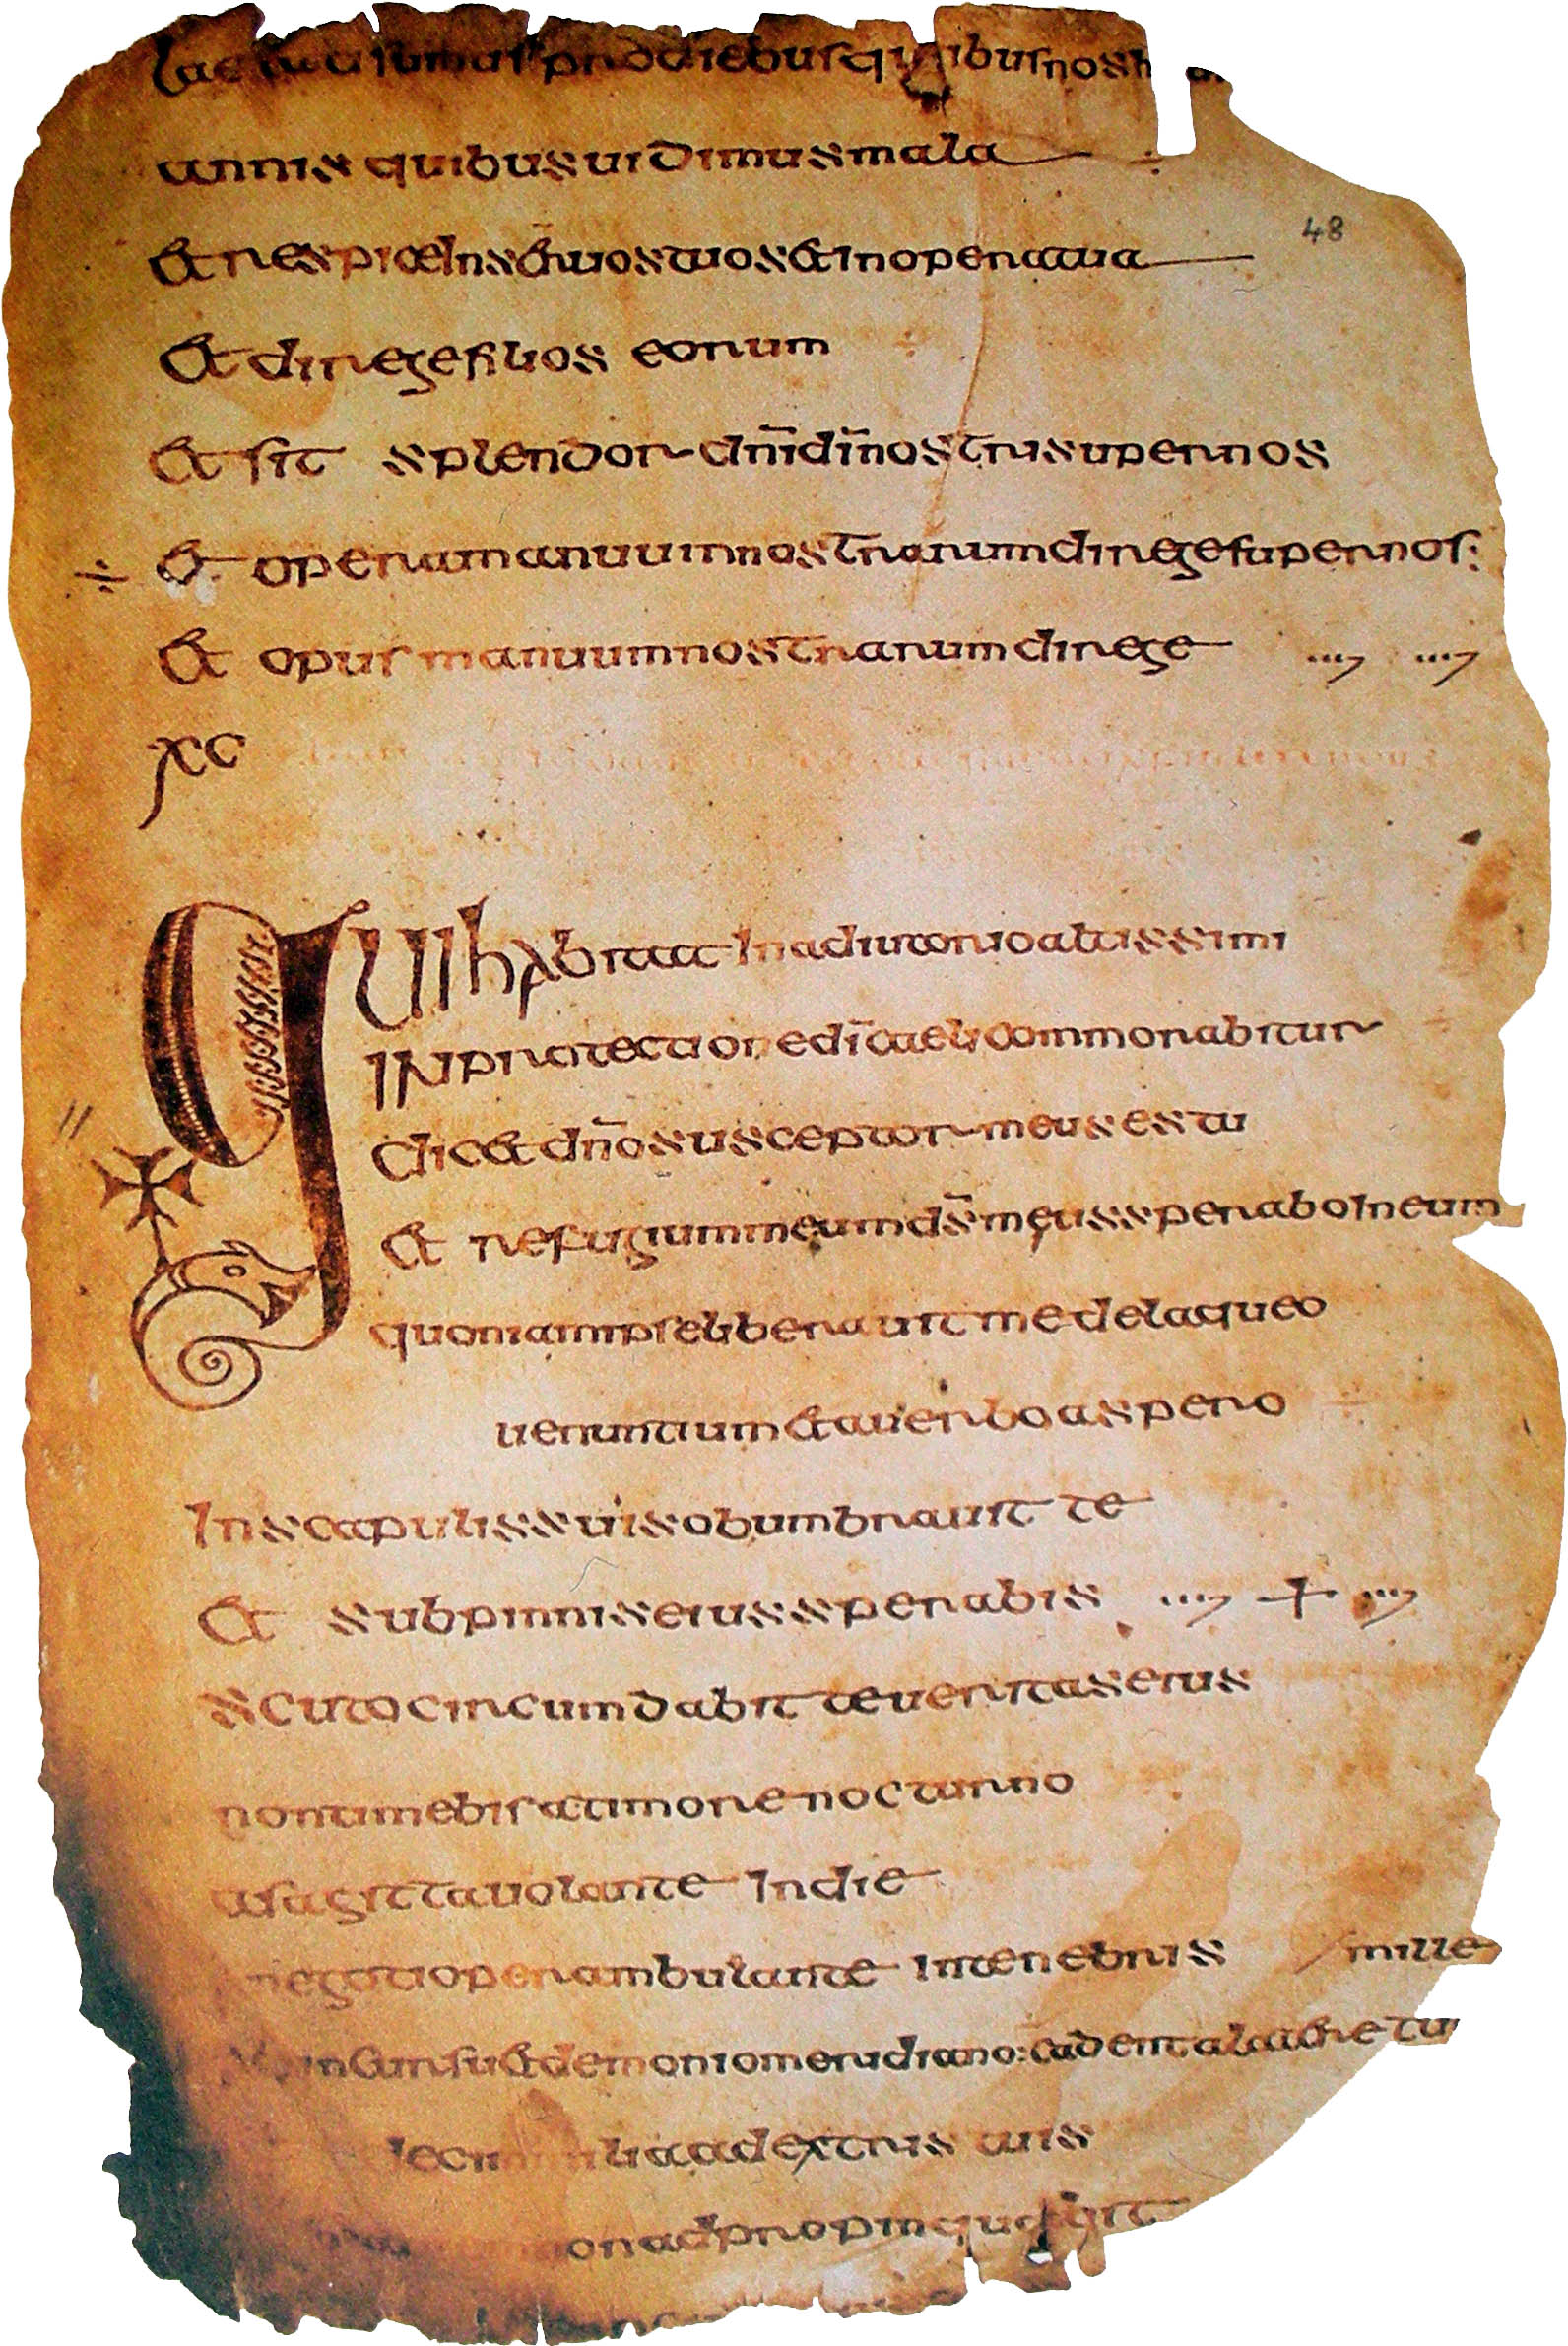 laetati sumus pro diebus quibus nos
annis quibus uidimus mala ÷
48
et respice in seruos tuos et in opera tua
et dirige filios eorum
et sit splendor dn̄i dī nostri super nos
÷ et opera manuum nostrarum dirige super nos:
et opus manuum nostrarum dirige
xc
Qui habitat in adiutorio altissimi
in protectione dī caeli commorabitur
dicet dn̄o susceptor meus es tu
et refugium meum ds̄ meus sperabo in eum
quoniam ipse liberauit me de laqueo
uenantium et a uerbo aspero
In scapulis suis obumbrauit te
et sub pinnis eius sperabis
scuto circumdabit te ueritas eius
non timebis a timore nocturno
a sagitta uolante in die
negotio perambulante in tenebris / mille
incursu et demonio meridiano: cadent a latere tu
decem milia a dextris tuis
non adpropinquabit